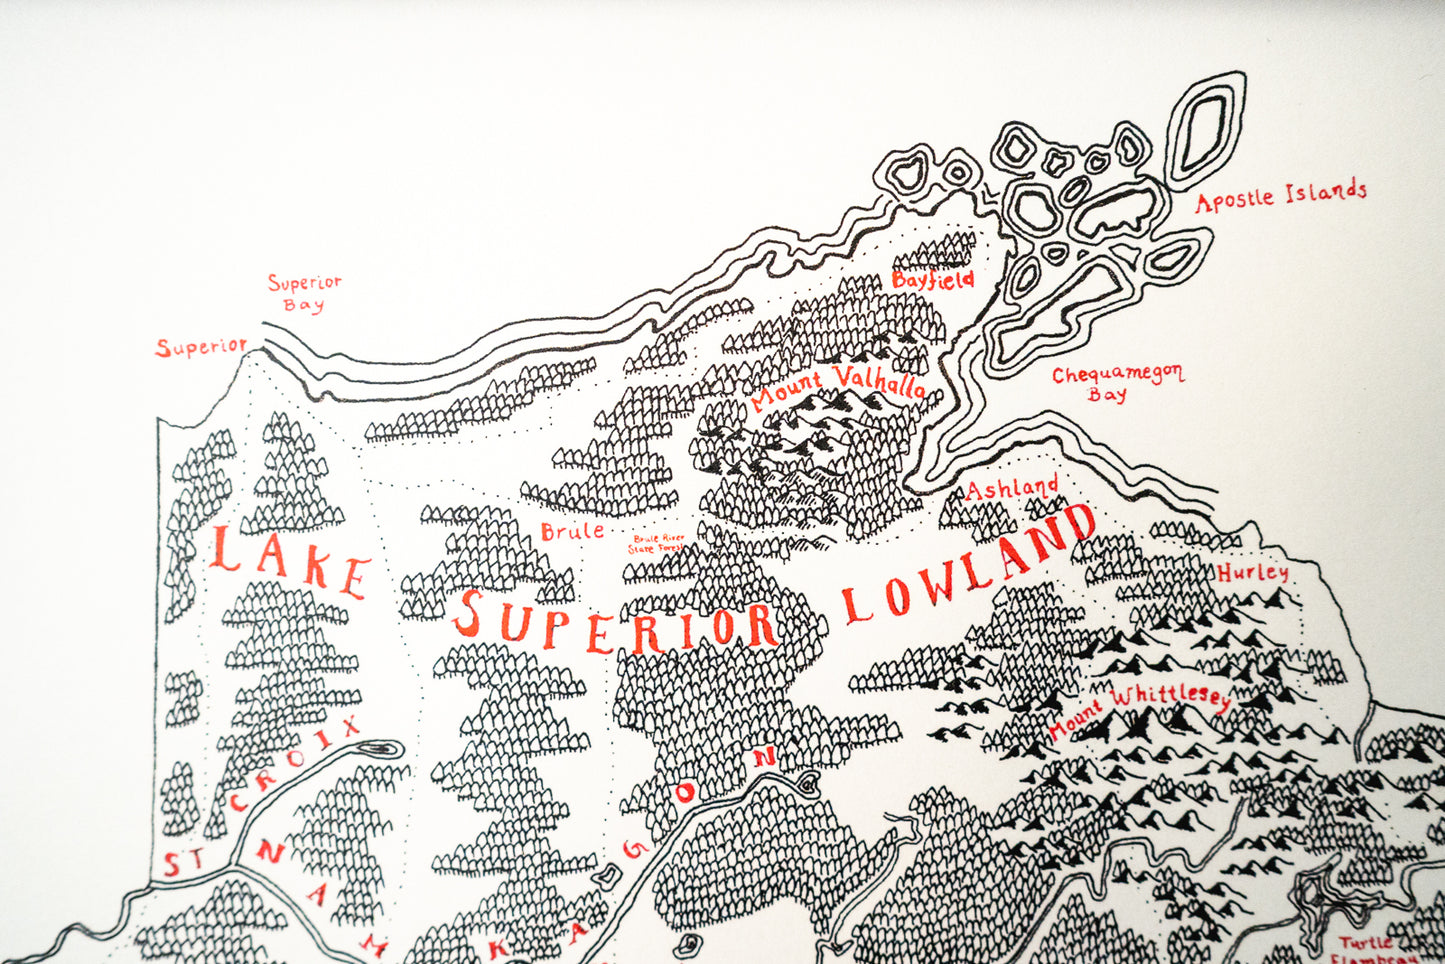 Apostle Islands
Bayfield
Superior
Bay
Superior
Chequamegon
Bay
Mount Valhalla
Ashland
Brule
Brule River
State Forest
LAKE SUPERIOR LOWLAND
Hurley
Mount Whittlesey
ST CROIX
NAMKAGON
Turtle
Flambeau